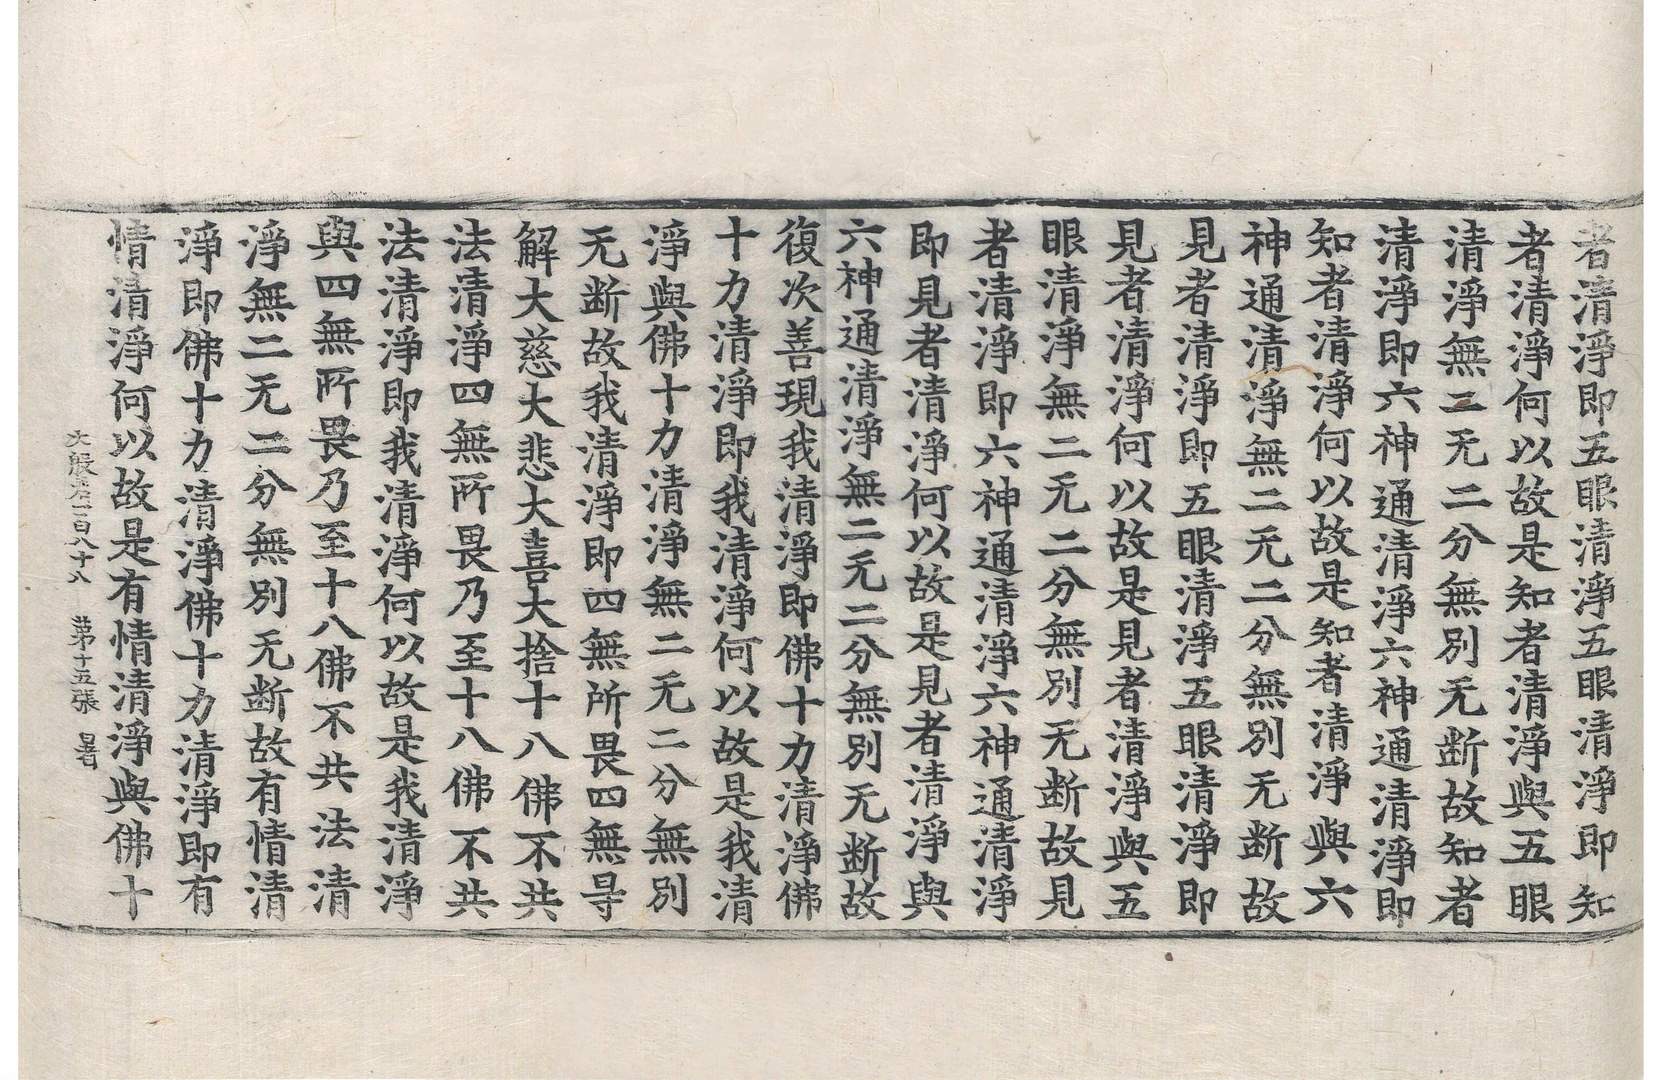 者清淨即五眼清淨五眼清淨即知
者清淨何以故是知者清淨與五眼
清淨無二无二分無別无断故知者
清淨即六神通清淨六神通清淨即
知者清淨何以故是知者清淨與六
神通清淨無二无二分無別无断故
見者清淨即五眼清淨五眼清淨即
見者清淨何以故是見者清淨與五
眼清淨無二无二分無別无断故見
者清淨即六神通清淨六神通清淨
即見者清淨何以故是見者清淨與
六神通清淨無二无二分無別无断故
復次善現我清淨即佛十力清淨佛
十力清淨即我清淨何以故是我清
淨與佛十力清淨無二无二分無別
无断故我清淨即四無所畏四無㝵
解大慈大悲大喜大捨十八佛不共
法清淨四無所畏乃至十八佛不共
法清淨即我清淨何以故是我清淨
與四無所畏乃至十八佛不共法清
淨無二无二分無別无断故有情清
淨即佛十力清淨佛十力清淨即有
情清淨何以故是有情清淨與佛十
大般若一百八十八 第十五張 暑